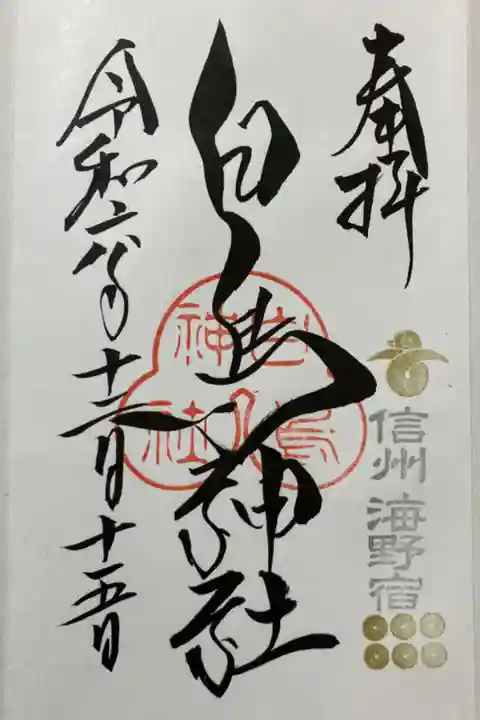 奉拝
信州 海野宿
白鳥神社
白鳥神社
令和六年
十二月十五日